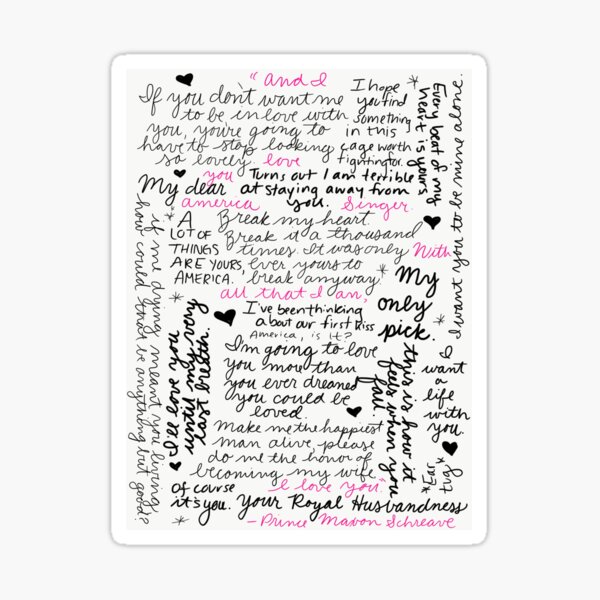 "and I
If you don't want me
to be in love with
you, you're going to
have to stop looking
so lovely.
love
I hope
you find
something
in this
cage worth
fighting for.
Every beat of my
heart is yours
I want you to be mine alone.
you
Turns out I am terrible
at staying away from
you.
My dear
america
Singer.
A
LOT OF
THINGS
ARE YOURS,
AMERICA.
Break my heart.
Break it a thousand
times. It was only
ever yours to
break anyway
With
all that I am,
My
only
pick.
I've been thinking
about our first kiss
America, is it?
I'm going to love
you more than
you ever dreamed
you could be
loved.
if me dying meant you living,
how could that be anything but good?
I'll love you
until my very
last breath.
this is how it
feels when you
fall.
I
want
a
life
with
you.
*Ear
tug*
Make me the happiest
man alive, please
do me the honor of
becoming my wife
I love you"
of course
it's you.
Your Royal Husbandness
- Prince Maxon Schreave